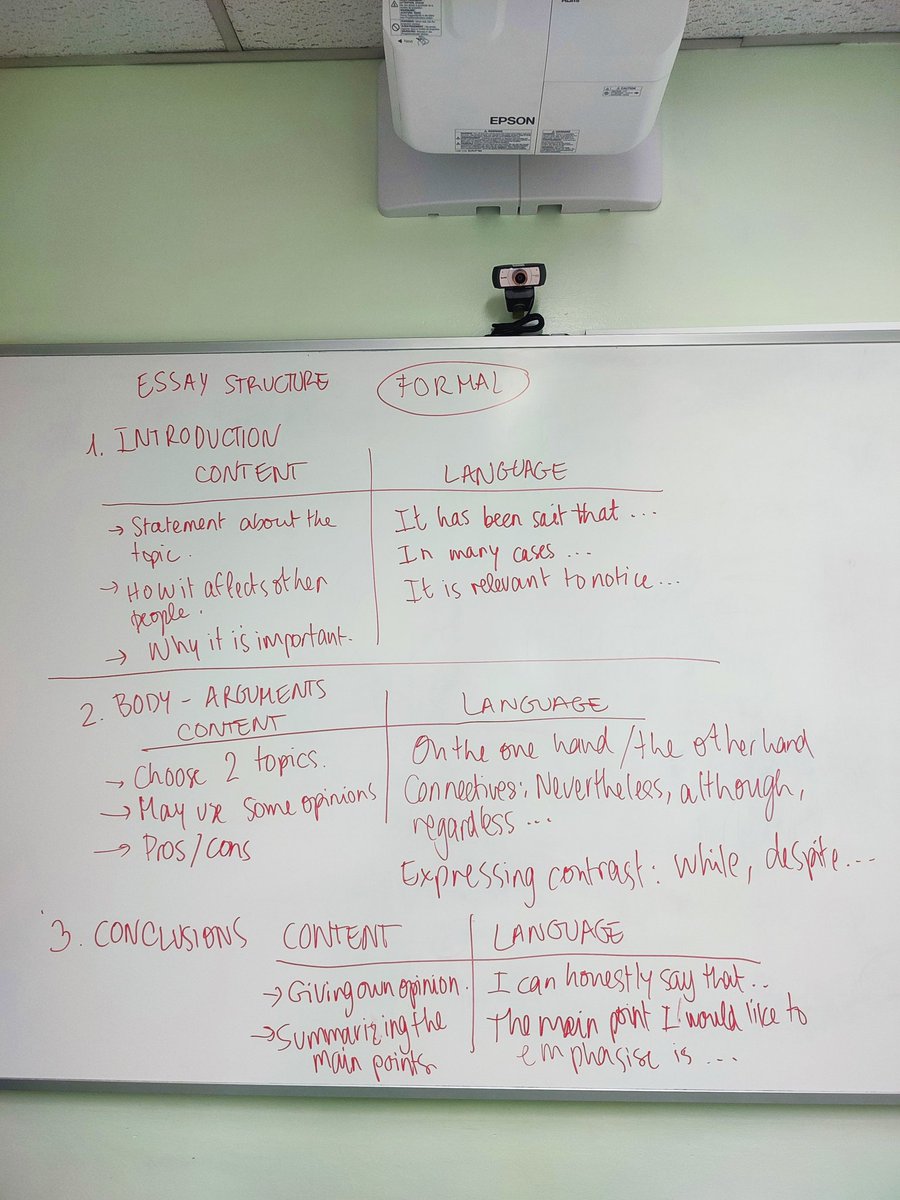 EPSON
ESSAY STRUCTURE FORMAL
1. INTRODUCTION
CONTENT
LANGUAGE
→ Statement about the
topic.
→ How it affects other
people.
→ Why it is important.
It has been sait that ...
In many cases ...
It is relevant to notice ...
2. BODY - ARGUMENTS
CONTENT
LANGUAGE
→ Choose 2 topics.
→ May use some opinions
→ Pros/cons
On the one hand / the other hand
Connectives: Nevertheless, although,
regardless ...
Expressing contrast: while, despite...
3. CONCLUSIONS
CONTENT
LANGUAGE
→ Giving own opinion.
→ Summarizing the
main points.
I can honestly say that..
The main point I would like to
emphasise is ...